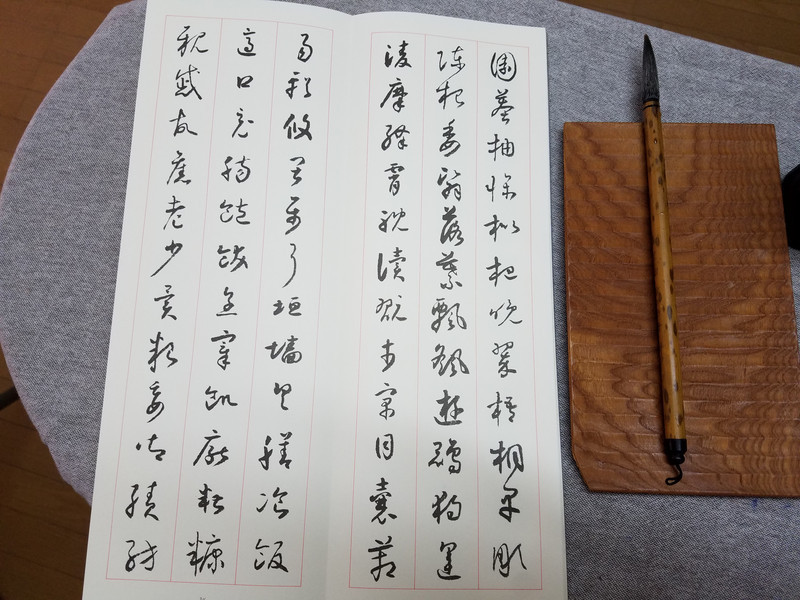 園莽抽條枇杷晚翠梧桐早彫
陳根委翳落葉飄颻遊鵾獨運
凌摩絳霄耽讀翫市寓目囊箱
易輶攸畏屬耳垣墻具膳飡飯
適口充腸飽飫烹宰飢厭糟糠
親戚故舊老少異糧妾御績紡